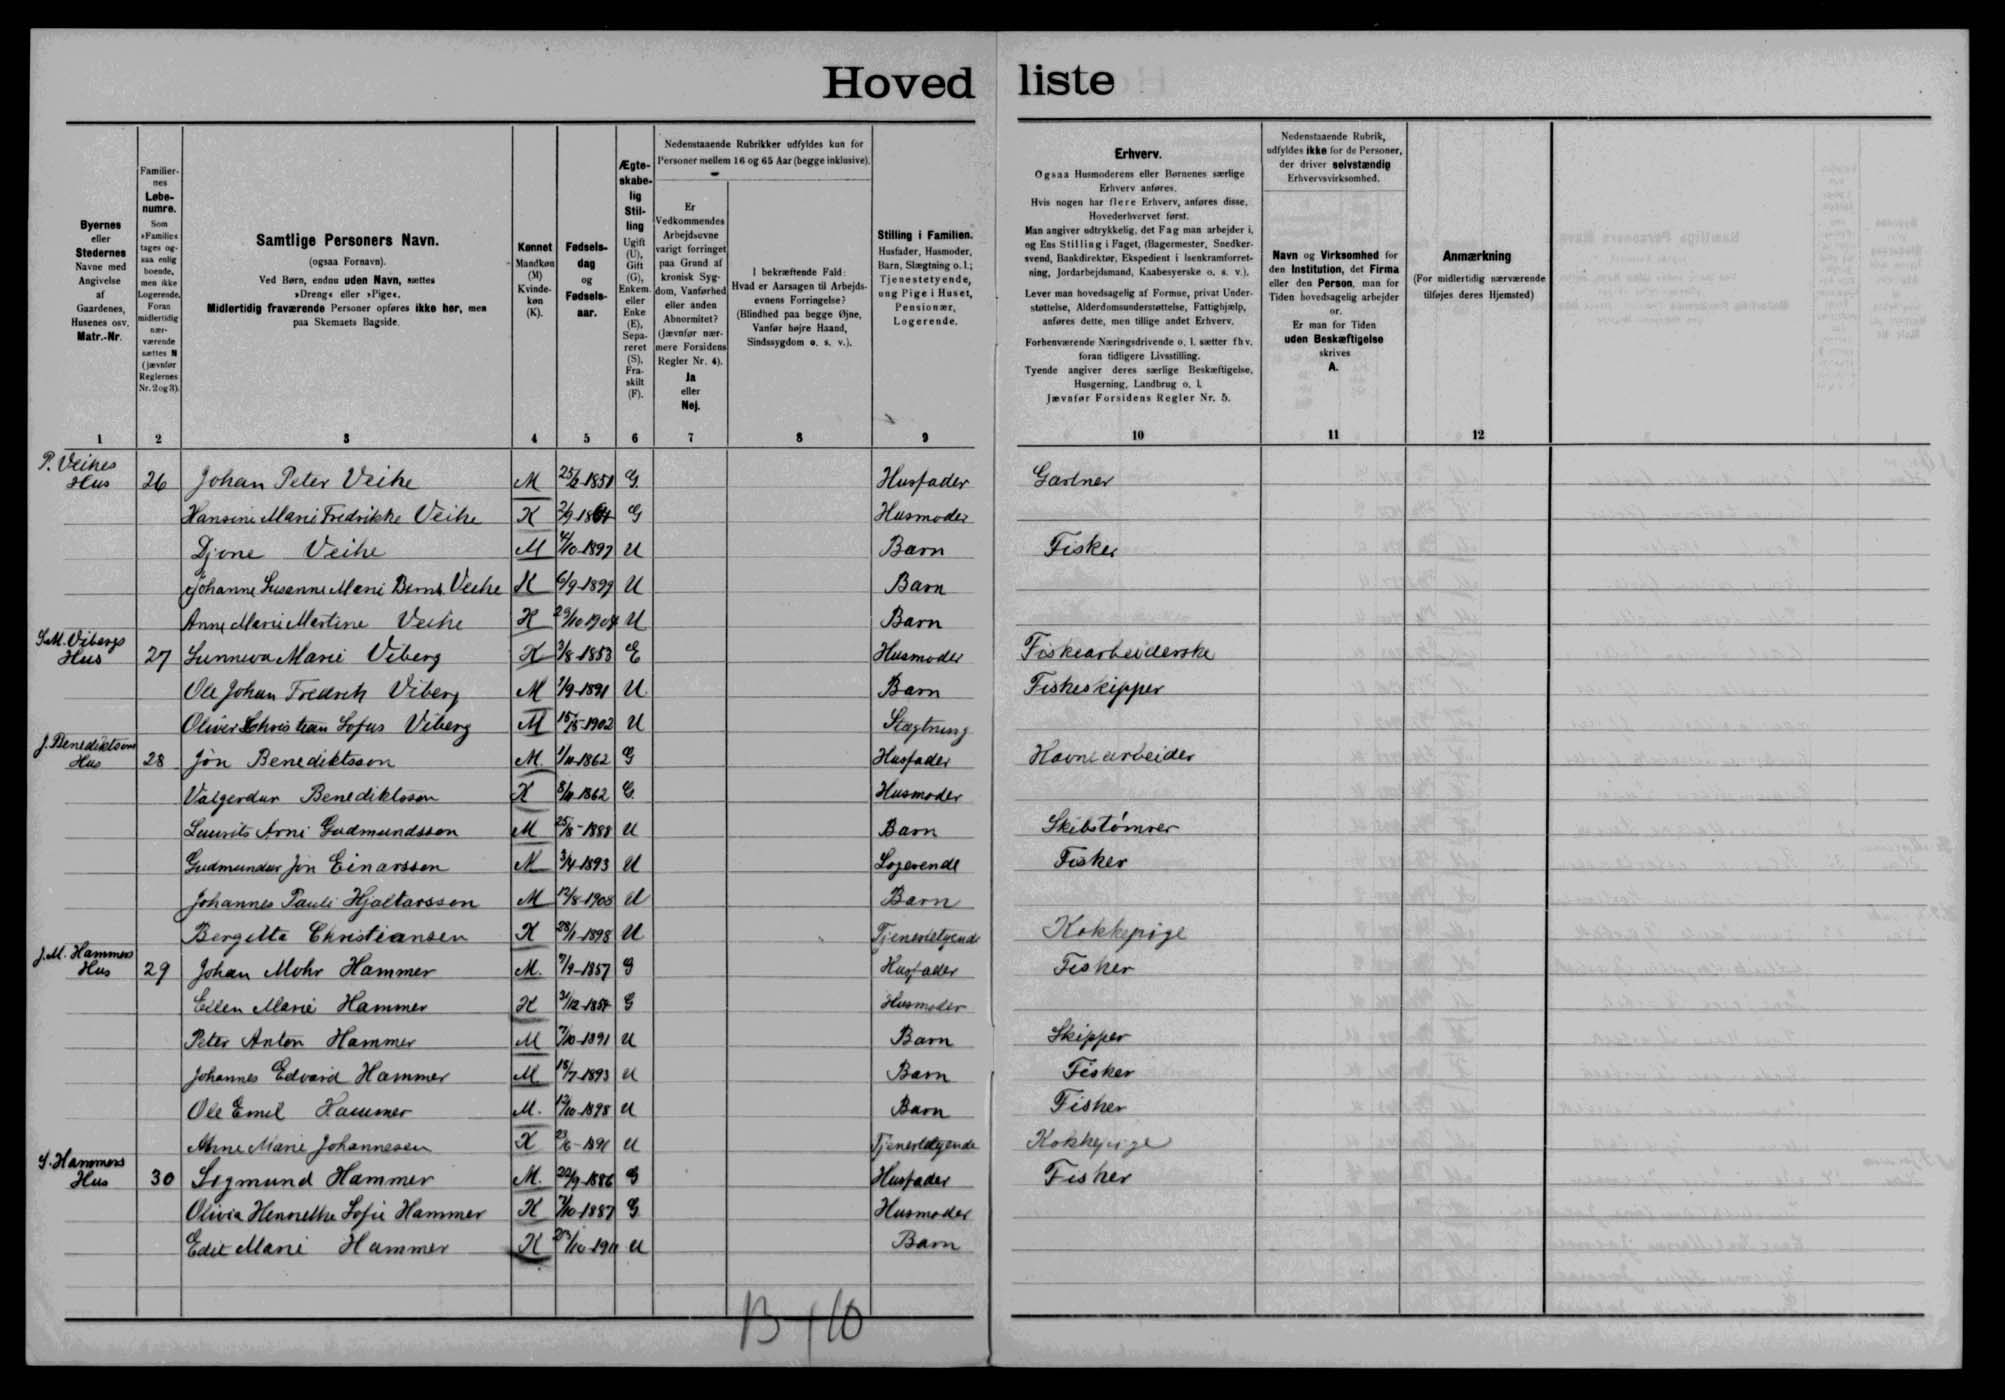 Hoved liste
Byernes
eller
Stedernes
Navne med
Angivelse
af
Gaardenes,
Husenes osv.
Matr.-Nr.
Familier-
nes
Løbe-
numre.
Som
»Familie«
tages og-
saa enlig
boende,
men ikke
Logerende.
Foran
midlertidig
nær-
værende
sættes N
(jævnfør
Reglernes
Nr. 2 og 3).
Samtlige Personers Navn.
(ogsaa Fornavn).
Ved Børn, endnu uden Navn, sættes
»Dreng« eller »Pige«.
Midlertidig fraværende Personer opføres ikke her, men
paa Skemaets Bagside.
Kønnet
Mandkøn
(M)
Kvinde-
køn
(K).
Fødsels-
dag
og
Fødsels-
aar.
Ægte-
skabe-
lig
Stil-
ling
Ugift
(U),
Gift
(G),
Enkem.
eller
Enke
(E),
Sepa-
reret
(S),
Fra-
skilt
(F).
Nedenstaaende Rubrikker udfyldes kun for
Personer mellem 16 og 65 Aar (begge inklusive).
Er
Vedkommendes
Arbejdsevne
varigt forringet
paa Grund af
kronisk Syg-
dom, Vanførhed
eller anden
Abnormitet?
(Jævnfør nær-
mere Forsidens
Regler Nr. 4).
Ja
eller
Nej.
I bekræftende Fald:
Hvad er Aarsagen til Arbejds-
evnens Forringelse?
(Blindhed paa begge Øjne,
Vanfør højre Haand,
Sindssygdom o. s. v.).
Stilling i Familien.
Husfader, Husmoder,
Barn, Slægtning o. l.;
Tjenestetyende,
ung Pige i Huset,
Pensionær,
Logerende.
Erhverv.
Ogsaa Husmoderens eller Børnenes særlige
Erhverv anføres.
Hvis nogen har flere Erhverv, anføres disse,
Hovederhvervet først.
Man angiver udtrykkelig, det Fag man arbejder i,
og Ens Stilling i Faget, (Bagermester, Snedker-
svend, Bankdirektør, Ekspedient i Isenkramforret-
ning, Jordarbejdsmand, Kaabesyerske o. s. v.).
Lever man hovedsagelig af Formue, privat Under-
støttelse, Alderdomsunderstøttelse, Fattighjælp,
anføres dette, men tillige andet Erhverv.
Forhenværende Næringsdrivende o. l. sætter fhv.
foran tidligere Livsstilling.
Tyende angiver deres særlige Beskæftigelse,
Husgerning, Landbrug o. l.
Jævnfør Forsidens Regler Nr. 5.
Nedenstaaende Rubrik,
udfyldes ikke for de Personer,
der driver selvstændig
Erhvervsvirksomhed.
Navn og Virksomhed for
den Institution, det Firma
eller den Person, man for
Tiden hovedsagelig arbejder
for.
Er man for Tiden
uden Beskæftigelse
skrives
A.
Anmærkning
(For midlertidig nærværende
tilføjes deres Hjemsted)
1 2 3 4 5 6 7 8 9 10 11 12
P. Veihes
Hus 26 Johan Peter Veihe M 25/2-1851 G Husfader Gartner
Hansine Marie Fredrikke Veihe K 2/9-1864 G Husmoder
Djone Veihe M 4/10-1897 U Barn Fisker
Johanne Susanne Marie Berns Veihe K 6/9-1899 U Barn
Anne Marie Martine Veihe K 29/10 1904 U Barn
S.M. Vibergs
Hus 27 Sunneva Marie Viberg K 3/8-1853 E Husmoder Fiskearbeiderske
Ole Johan Fredrik Viberg M 1/9-1891 U Barn Fiskeskipper
Oliver Christian Sofus Viberg M 1902 U Slægtning
J. Benediktsons
Hus 28 Jón Benediktsson M 1/11-1862 G Husfader Havnearbeider
Valgerdur Benediktsson K 8/11-1862 G Husmoder
Laurits Arni Gudmundsson M 25/8-1888 U Barn Skibstømrer
Gudmundur Jón Einarsson M 3/4-1893 U Logerende Fisker
Johannes Pauli Hjaltarsson M 12/8-1908 U Barn
Bergitta Christiansen K 28/1-1898 U Tjenestetyende Kokkepige
J.M. Hammers
Hus 29 Johan Mohr Hammer M. 7/9-1857 G Husfader Fisker
Ellen Marie Hammer K 31/12-1854 G Husmoder
Peter Anton Hammer M 7/10-1891 U Barn Skipper
Johannes Edvard Hammer M 18/7-1893 U Barn Fisker
Ole Emil Hammer M. 12/10-1898 U Barn Fisker
Anne Marie Johannesen K 23/6-1891 U Tjenestetyende Kokkepige
S. Hammers
Hus 30 Sigmund Hammer M. 20/9-1886 G Husfader Fisker
Olivia Henriette Sofie Hammer K 7/10-1887 G Husmoder
Edit Marie Hammer K 27/10-1911 U Barn
13 + 10